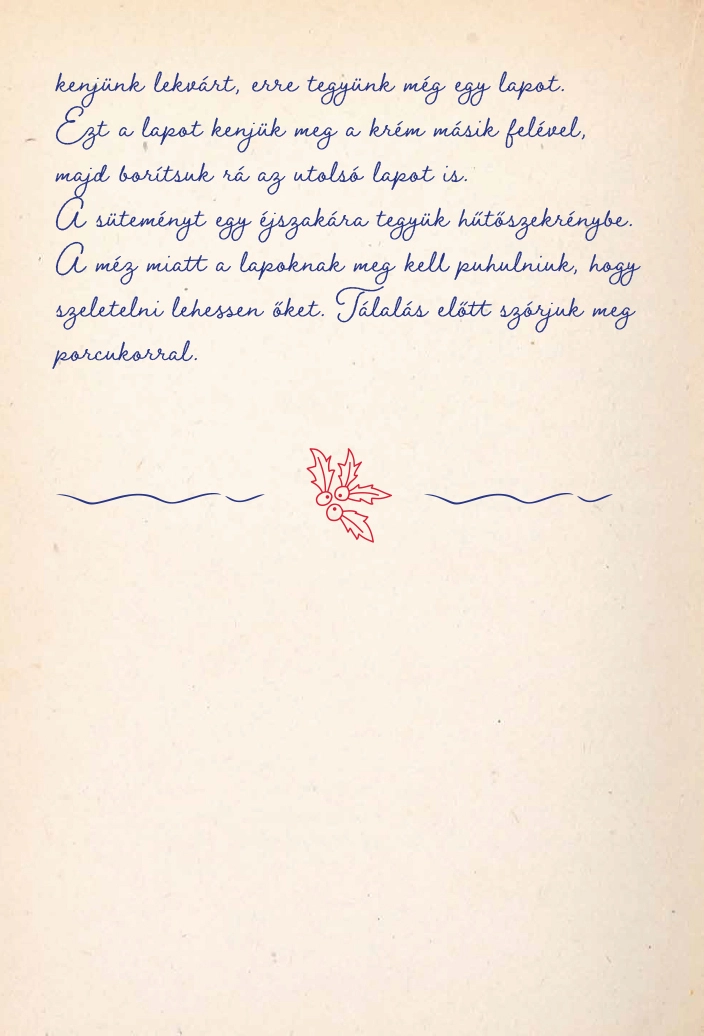 kenjünk lekvárt, erre tegyünk még egy lapot.
Ezt a lapot kenjük meg a krém másik felével,
majd borítsuk rá az utolsó lapot is.
A süteményt egy éjszakára tegyük hűtőszekrénybe.
A méz miatt a lapoknak meg kell puhulniuk, hogy
szeletelni lehessen őket. Tálalás előtt szórjuk meg
porcukorral.